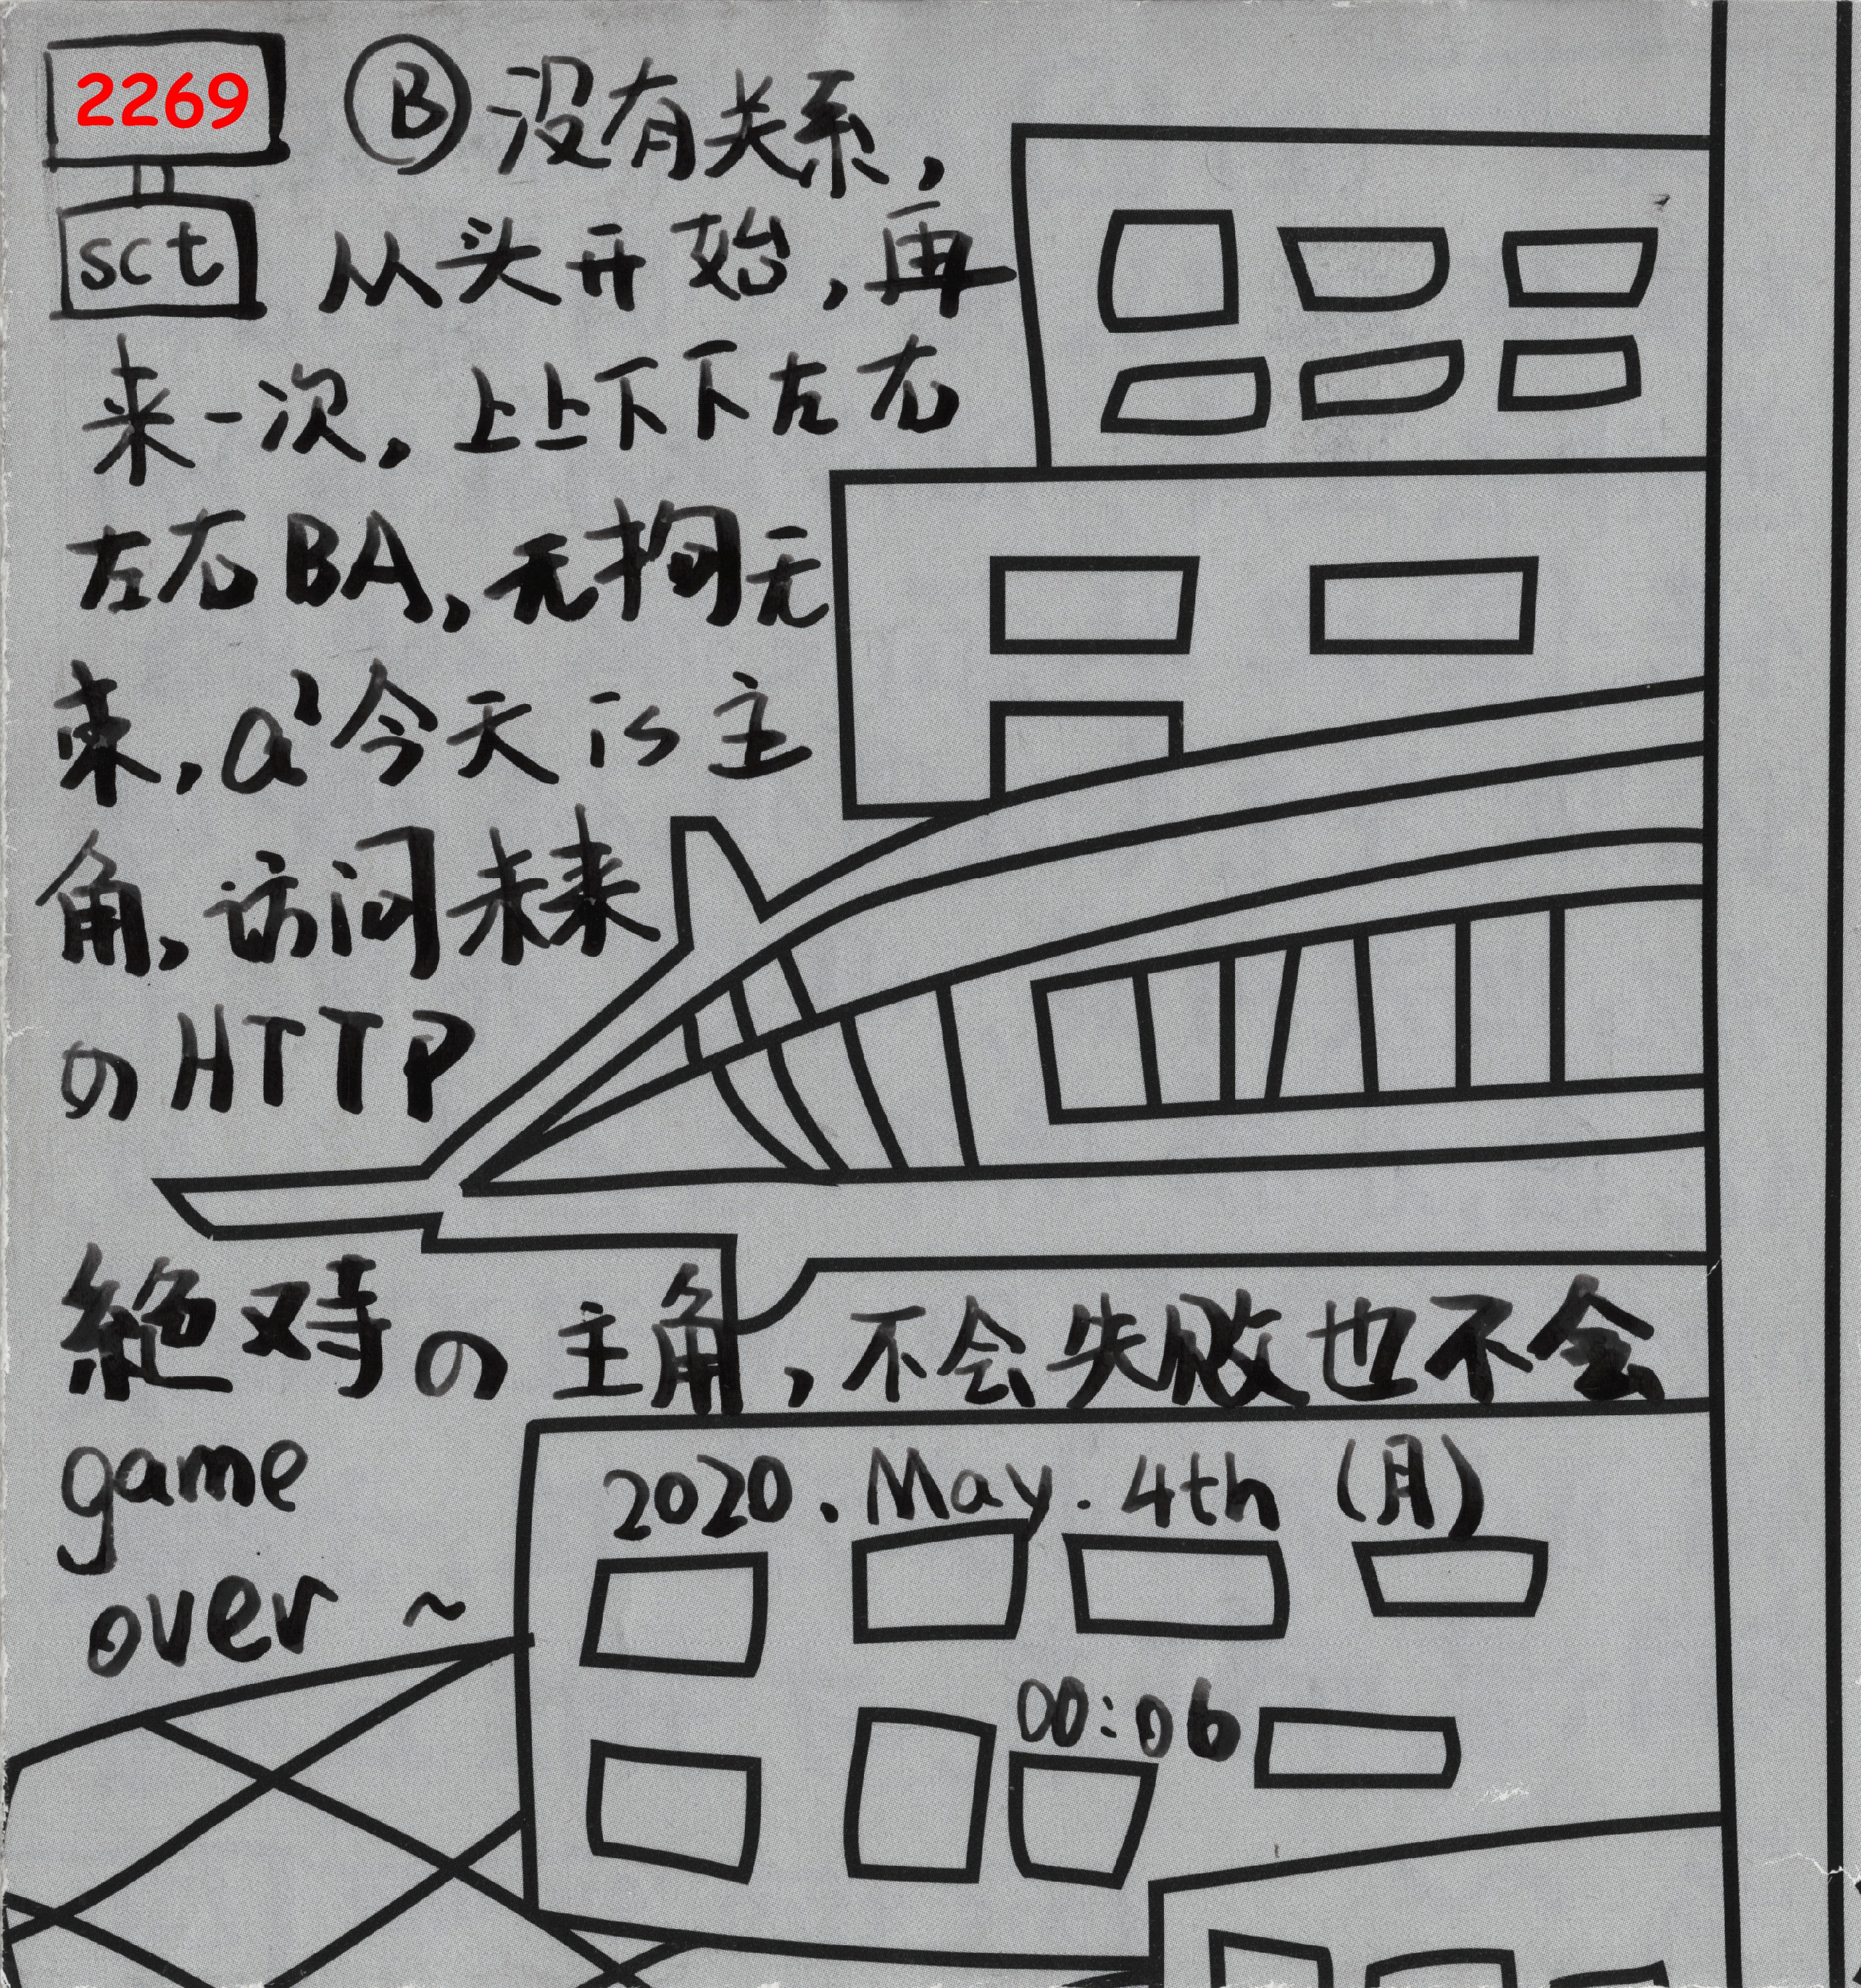 2269
Ⓑ没有关系,
sct
从头开始,再
来一次,上上下下左右
左右BA,无拘无
束,a'今天is主
角,访问未来
のHTTP
絕对の主角,不会失败也不会
game
over ~
2020.May.4th (月)
00:06